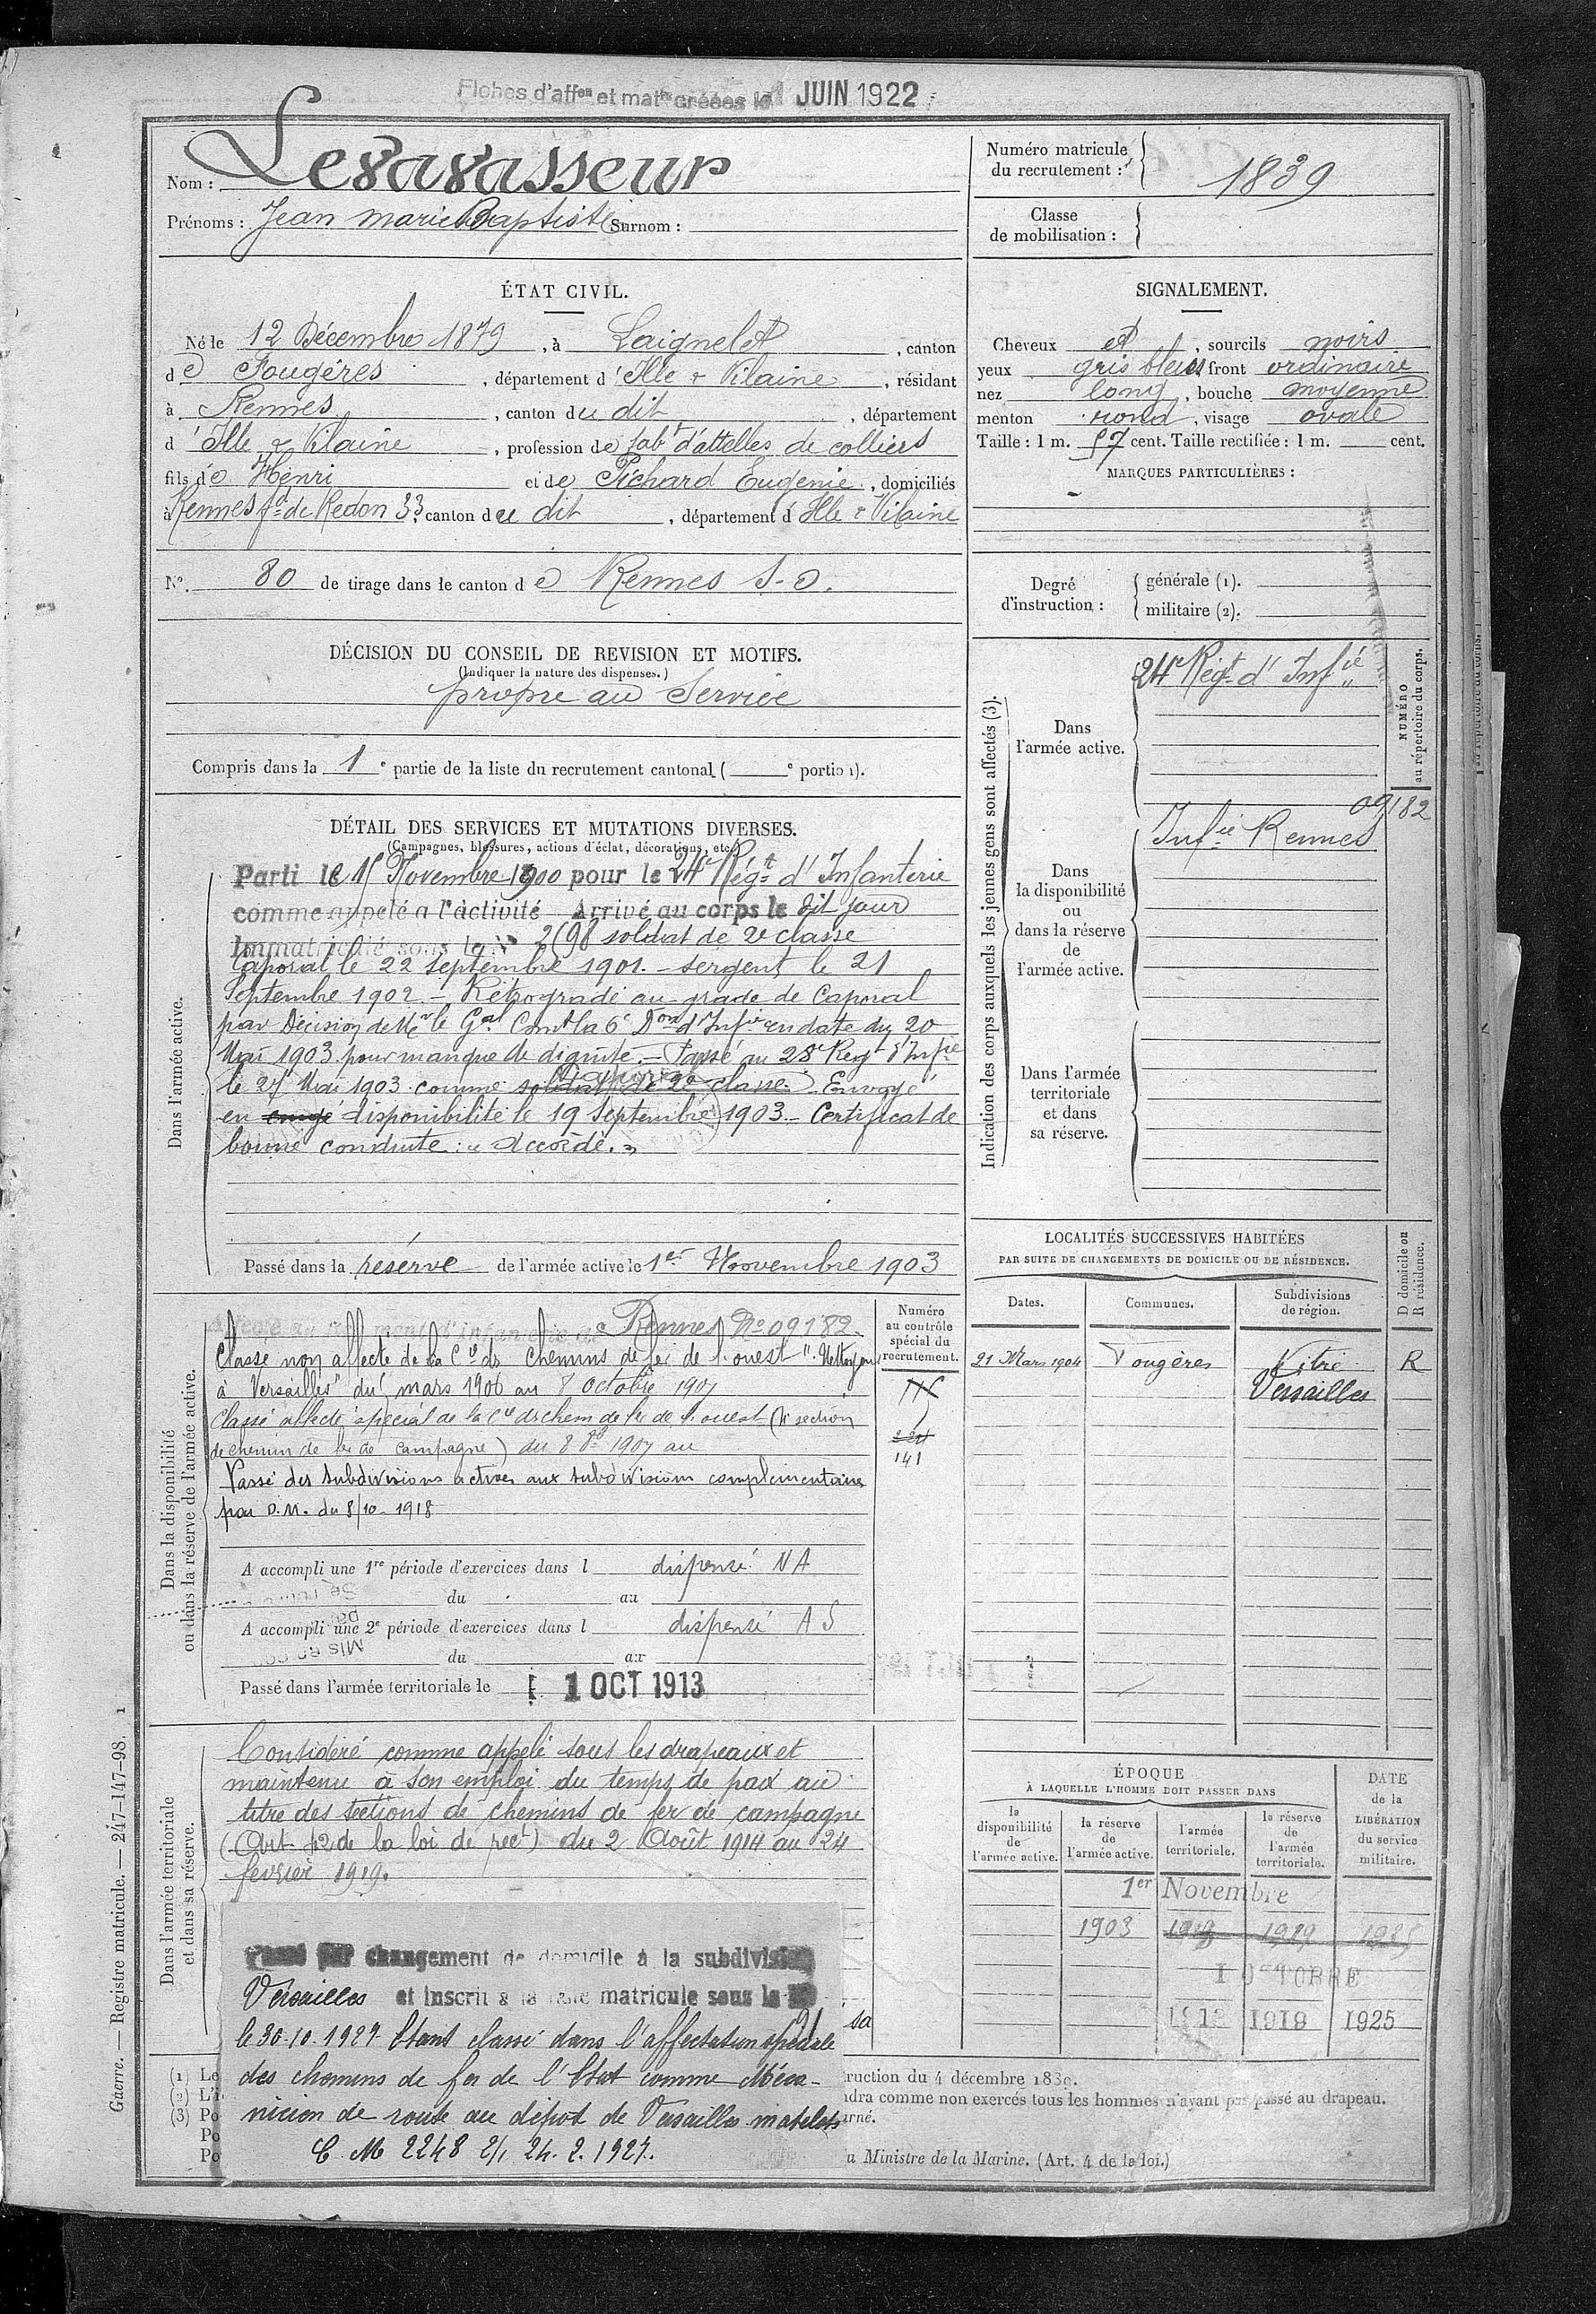 Fiches d'aff^on et mat^le créées le 1 JUIN 1922
Nom : Levavasseur
Prénoms : Jean Marie Baptiste Surnom :
Numéro matricule du recrutement : 1839
Classe de mobilisation :
ÉTAT CIVIL.
Né le 12 Décembre 1879, à Laignelet, canton
de Fougères, département d'Ille & Vilaine, résidant
à Rennes, canton du dit, département
d'Ille & Vilaine, profession de fab^t d'attelles de colliers
fils de Henri et de Pichard Eugénie, domiciliés
à Rennes f^g de Redon 33, canton du dit, département d'Ille & Vilaine
N° 80 de tirage dans le canton de Rennes S-O.
SIGNALEMENT.
Cheveux et, sourcils noirs
yeux gris bleus front ordinaire
nez long, bouche moyenne
menton rond, visage ovale
Taille : 1 m. 57 cent. Taille rectifiée : 1 m. cent.
MARQUES PARTICULIÈRES :
Degré d'instruction : générale (1).
militaire (2).
DÉCISION DU CONSEIL DE REVISION ET MOTIFS.
(Indiquer la nature des dispenses.)
propre au Service
Compris dans la 1^e partie de la liste du recrutement cantonal ( ^e portion).
DÉTAIL DES SERVICES ET MUTATIONS DIVERSES.
(Campagnes, blessures, actions d'éclat, décorations, etc.)
Dans l'armée active.
Parti le 15 Novembre 1900 pour le 24^e Rég^t d'Infanterie
comme appelé à l'activité Arrivé au corps le dit jour
Immatriculé sous le N° 2698 soldat de 2^e classe
Caporal le 22 Septembre 1901. - Sergent le 21
Septembre 1902 - Rétrogradé au grade de Caporal
par Décision de M^r le G^al Com^t la 6^e D^on d'Inf^ie en date du 20
Mai 1903 pour manque de dignité. - Passé au 28^e Reg^t d'Inf^ie
le 27 Mai 1903 comme soldat de 2^e classe Caporal. Envoyé
en congé disponibilité le 19 Septembre 1903 - Certificat de
bonne conduite : "Accordé."
Passé dans la réserve de l'armée active le 1^er Novembre 1903
Indication des corps auxquels les jeunes gens sont affectés (3).
NUMÉRO au répertoire du corps.
Dans l'armée active.
24^e Rég^t d'Inf^ie
Dans la disponibilité ou dans la réserve de l'armée active.
Inf^ie Rennes 09182
Dans l'armée territoriale et dans sa réserve.
Dans la disponibilité ou dans la réserve de l'armée active.
Affecté au régiment d'infanterie de Rennes N° 09182
Classé non affecté de la C^ie des chemins de fer de l'ouest "Nettoyeur
à Versailles" du mars 1906 au 8 Octobre 1907
Classé affecté spécial de la C^ie des chem de fer de l'ouest (4^e section
de chemin de fer de campagne) du 8 8^bre 1907 au
Passé des subdivisions actives aux subdivisions complémentaires
par D.M. du 8/10-1918
Numéro au contrôle spécial du recrutement.
141
A accompli une 1^re période d'exercices dans l dispensé NA
du au
A accompli une 2^e période d'exercices dans l dispensé AS
du au
Passé dans l'armée territoriale le 1 OCT 1913
LOCALITÉS SUCCESSIVES HABITÉES
PAR SUITE DE CHANGEMENTS DE DOMICILE OU DE RÉSIDENCE.
Dates. Communes. Subdivisions de région. D domicile ou R résidence.
21 Mars 1904 Fougères Vitré R
Versailles
Dans l'armée territoriale et dans sa réserve.
Considéré comme appelé sous les drapeaux et
maintenu à son emploi du temps de paix au
titre des sections de chemins de fer de campagne
(Art. 42 de la loi de rec^t) du 2 Août 1914 au 24
février 1919.
Passé par changement de domicile à la subdivision
Versailles et inscrit à la liste matricule sous le N°
le 30-10-1927 Etant classé dans l'affectation spéciale
des chemins de fer de l'Etat comme Méca-
nicien de route au dépôt de Versailles matelots
C. M 2248 2/1 24.2.1927.
ÉPOQUE
À LAQUELLE L'HOMME DOIT PASSER DANS
la disponibilité de l'armée active. la réserve de l'armée active. l'armée territoriale. la réserve de l'armée territoriale. DATE de la LIBÉRATION du service militaire.
1^er Novembre
1903 1913 1919 1925
1 OCTOBRE
1913 1919 1925
(1) Le
(2) L'i
(3) Po
Po
Po
sa
ruction du 4 décembre 1889.
ndra comme non exercés tous les hommes n'ayant pas passé au drapeau.
urné.
u Ministre de la Marine. (Art. 4 de la loi.)
Guerre. — Registre matricule. — 247-147-98. 1